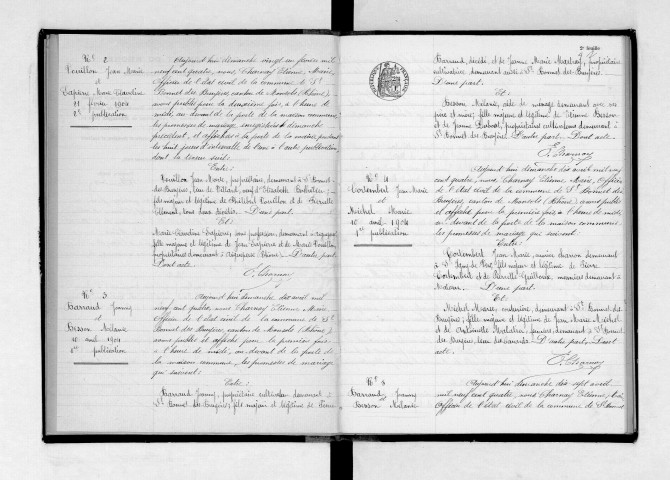 N° 2
Pouillon Jean Marie
et
Lapierre Marie Claudine
21 février 1904
2e publication
Aujourd'hui dimanche vingt un février mil
neuf cent quatre, nous Charnay Etienne Marie,
Officier de l'état civil de la commune de St
Bonnet des Bruyères, canton de Monsols (Rhône),
avons publié pour la deuxième fois, à l'heure de
midi, au devant de la porte de la maison commune
les promesses de mariage enregistrées dimanche
précédent, et affichées à la porte de la mairie pendant
les huit jours d'intervalle de l'une à l'autre publication,
dont la teneur suit:
Entre:
Pouillon Jean Marie, propriétaire, demeurant à St Bonnet
des Bruyères, lieu de
fils majeur et légitime de
Clément, tous deux décédés. D'une part.
Et:
Marie Claudine Lapierre, sans profession, demeurant à
fille majeure et légitime de Jean Lapierre et de Marie
propriétaires demeurant à Rhône. D'autre part.
Dont acte.
E. Charnay
N° 3
Barraud Joanny
et
Besson Melanie
10 avril 1904
1re publication
Aujourd'hui dimanche dix avril mil
neuf cent quatre, nous Charnay Etienne Marie
Officier de l'état civil de la commune de St
Bonnet des Bruyères, canton de Monsols (Rhône),
avons publié et affiché pour la première fois
à l'heure de midi, au devant de la porte de
la maison commune, les promesses de mariage
qui suivent:
Entre:
Barraud Joanny, propriétaire cultivateur demeurant à
St Bonnet des Bruyères, fils majeur et légitime de Pierre
2e feuillet
Barraud, décédé, et de Jeanne Marie propriétaire
cultivatrice demeurant audit St Bonnet des Bruyères.
D'une part.
Et:
Besson Melanie, aide de ménage demeurant avec ses
père et mère; fille majeure et légitime de Etienne Besson
et de Jeanne propriétaires cultivateurs demeurant à
St Bonnet des Bruyères. D'autre part. Dont acte.
E. Charnay
N° 4
Cortembert Jean Marie
et
Michel Marie
10 avril 1904
1re publication
Aujourd'hui dimanche dix avril mil neuf
cent quatre, nous Charnay Etienne Marie, Officier
de l'état civil de la commune de St Bonnet des
Bruyères, canton de Monsols (Rhône), avons publié
et affiché pour la première fois à l'heure de midi,
au devant de la porte de la maison commune
les promesses de mariage qui suivent:
Entre:
Cortembert Jean Marie, ouvrier charron demeurant
à fils majeur et légitime de Pierre
Cortembert et de Pierrette demeurant à
D'une part.
Et
Michel Marie, couturière, demeurant à St Bonnet des
Bruyères; fille majeure et légitime de Jean Marie Michel
et de Antoinette demeurant à St Bonnet
des Bruyères, lieu D'autre part. Dont
acte.
E. Charnay
N° 5
Barraud Joanny
et
Besson Melanie
Aujourd'hui dimanche dix sept avril
mil neuf cent quatre, nous Charnay Etienne Marie
Officier de l'état civil de la commune de St Bonnet